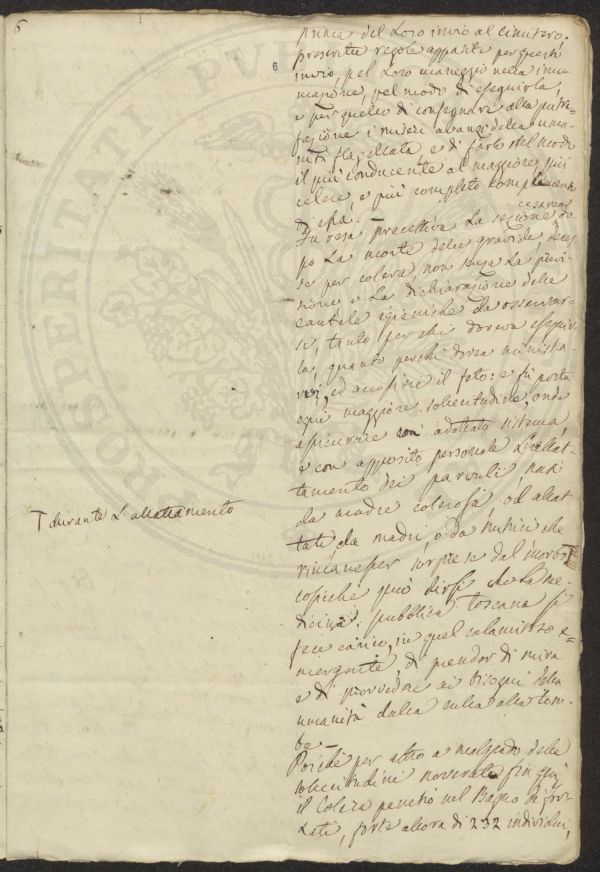 6
6
prima del Loro invio al cimitero.
prescritte regole apposite per questo
invio, pel Loro maneggio nella inu-
mazione, pel modo di eseguirla,
e per quello di consegnare alla putre-
fazione i miseri avanzi della uma-
nità flagellata, e di farlo nel modo
il più conducente al maggiore, più
celere, e più completo compimento
di essa.
Fu resa precettiva La sezione cesarea do-
po La morte delle gravide, deces-
se per colera, non senza La previ-
sione, e La dichiarazione delle
cautele igieniche da osservar-
si, tanto per chi doveva eseguir-
la, quanto per chi dovea ministra-
re, ed accudire il feto: e fu portata
ogni maggiore sollecitudine, onde
assicurare con adottato sistema,
e con apposito personale L'allat-
tamento dei parvuli, nati
da madre colerosa, od allat-
tati da madri, o da nutrici che
rimaneper sorprese dal morbo T
cosicchè può dirsi che La me-
dicina pubblica toscana si
fece carico, in quel calamitoso e-
mergente, di prender di mira
e di provvedere ai bisogni della
umanità dalla culla alla tom-
ba.
T durante L'allattamento
Poichè per altro a malgrado delle
sollecitudini noverate fin qui
il Colera penetrò nel Bagno dei for-
zati, forte allora di 232 individui,
PROSPERITATI PUBLICAE